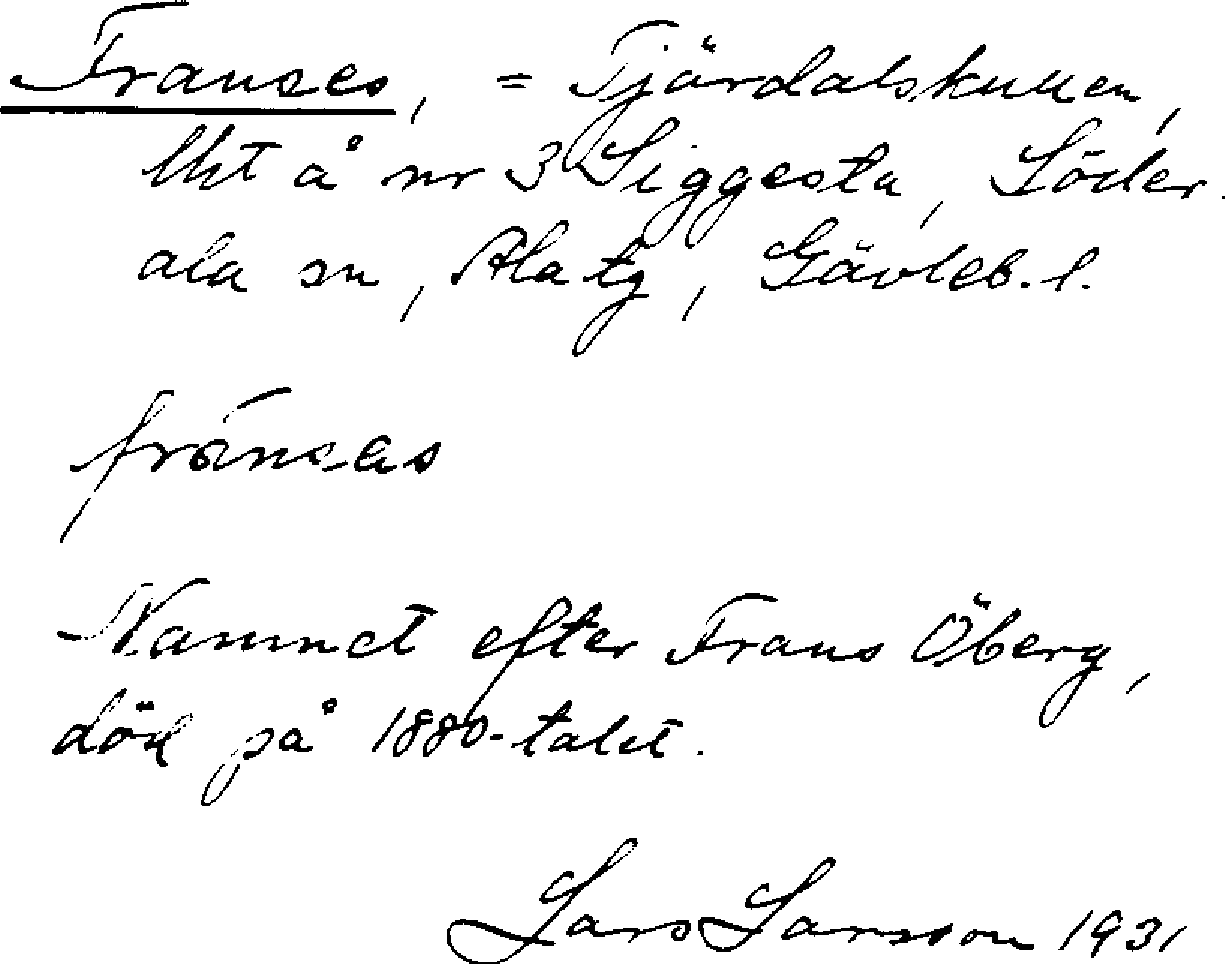 Franses, = Tjärdalskullen,
lht å nr 3 Siggesta, Söder-
ala sn, Ala tg, Gävleb. l.
franses
Namnet efter Frans Öberg,
död på 1880-talet.
Lars Larsson 1931